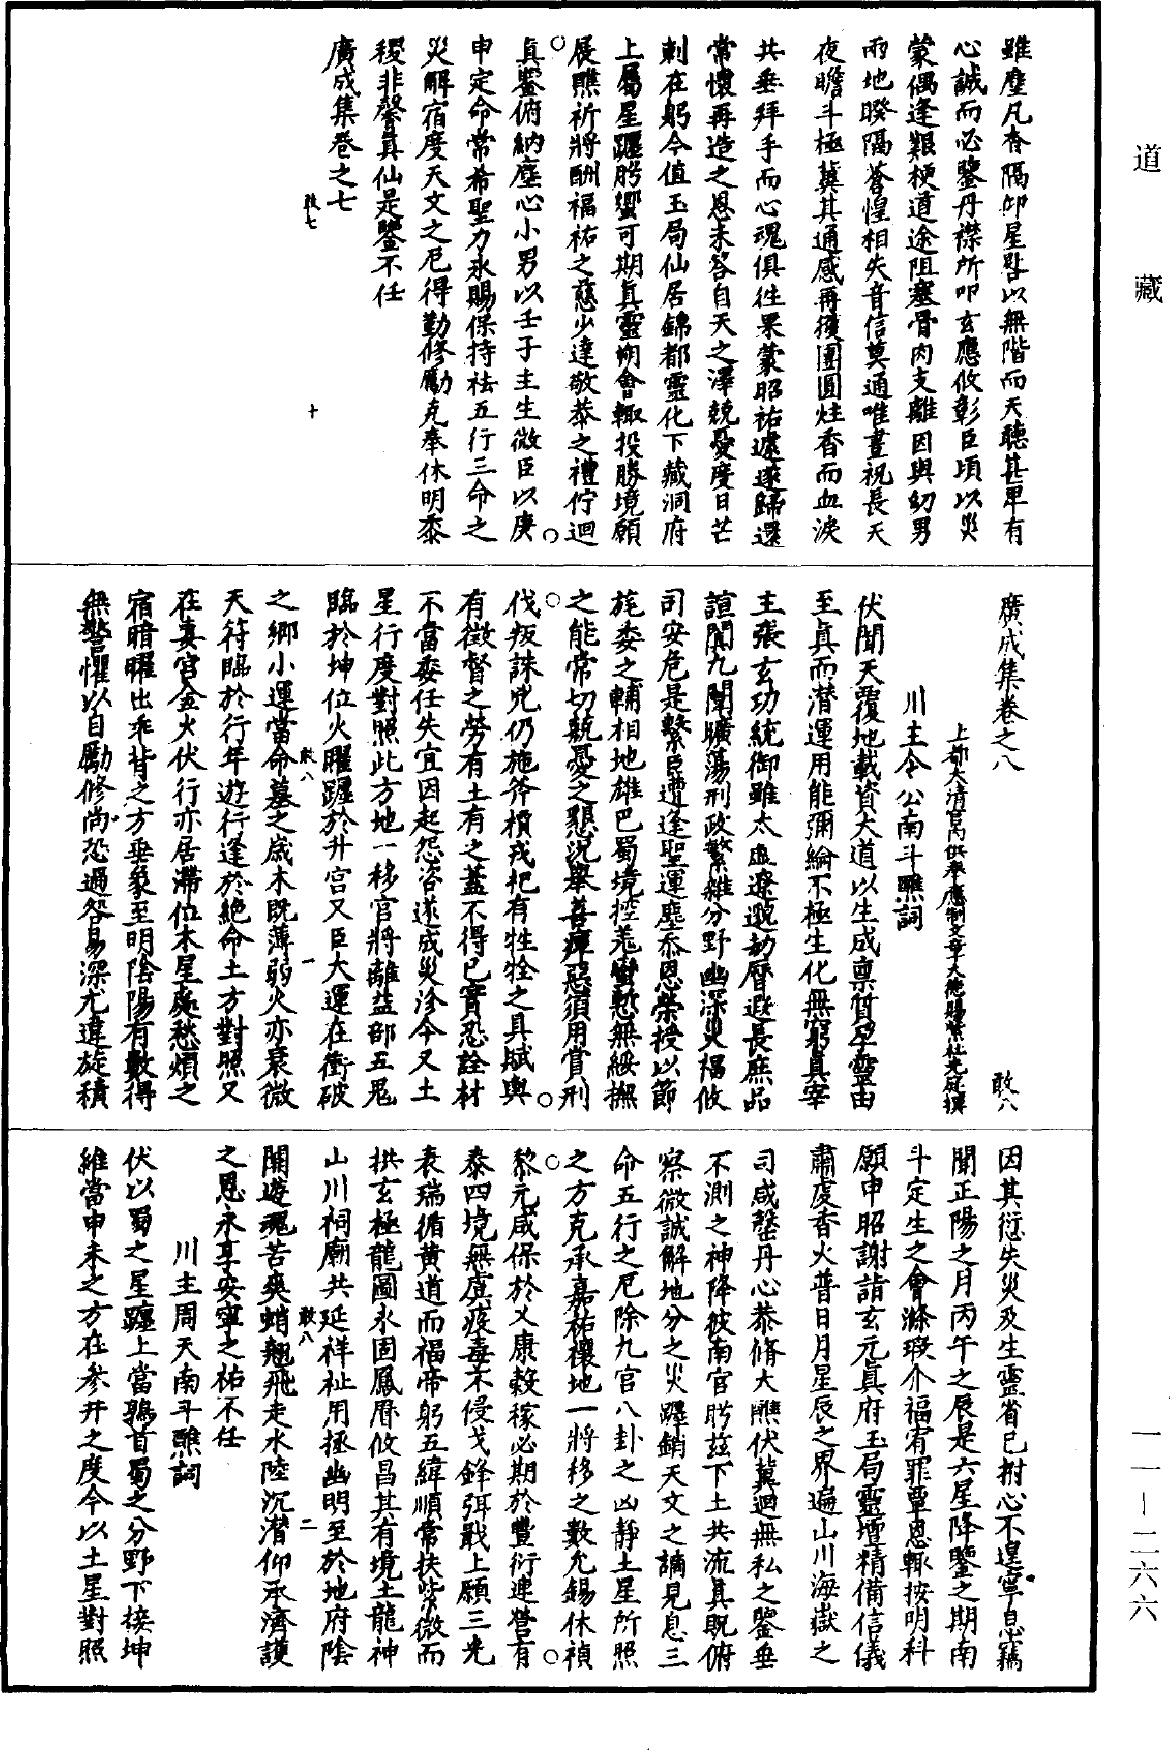 道藏
雖塵凡杳隔仰星路以無階而天聽甚卑有
心誠而必鑒丹襟所叩玄應攸彰臣頃以災
蒙偶逢艱梗道途阻塞骨肉支離因與幼男
兩地睽隔蒼惶相失音信莫通唯晝祝長天
夜瞻斗極冀其通感再獲團圓炷香而血淚
共垂拜手而心魂俱往果蒙昭祐遽遂歸還
常懷再造之恩未答自天之澤兢憂度日芒
刺在躬今值玉局仙居錦都靈化下藏洞府
上屬星躔肸蠁可期真靈朔會輙投勝境願
展醮祈將酬福祐之慈少達敬恭之禮佇迴
真鑒俯納塵心小男以壬子主生微臣以庚
申定命常希聖力永賜保持祛五行三命之
災解宿度天文之厄得勤修勵克奉休明黍
稷非馨真仙是鑒不任
廣成集卷之七
敢七
十
廣成集卷之八
敢八
上都太清宮內供奉應制文章大德賜紫杜光庭撰
川主令公南斗醮詞
伏聞天覆地載資大道以生成稟質孕靈由
至真而潛運用能彌綸不極生化無窮真宰
主張玄功統御雖太虛遼邈劫曆遐長庶品
諠闐九闈曠蕩刑政繁雜分野幽深災福攸
司安危是繫臣遭逢聖運塵忝恩榮授以節
旄委之輔相地雄巴蜀境控羌蠻慙無綏撫
之能常切兢憂之懇況舉善癉惡須用賞刑
伐叛誅兇仍施斧櫍戎祀有牲牷之具賦輿
有徵督之勞有土有之蓋不得已實恐詮材
不當委任失宜因起怨咨遂成災沴今又土
星行度對照此方地一移宮將離益部五鬼
臨於坤位火曜躔於升宮又臣大運在衝破
敢八
一
之鄉小運當命墓之歲木既薄弱火亦衰微
天符臨於行年遊行逢於絕命土方對照又
在真宮金火伏行亦居滯位木星處愁煩之
宿暗曜出乖背之方垂象至明陰陽有數得
無警懼以自勵修尚恐過咎易深尤違旋積
因其愆失災及生靈省已拊心不遑寧息竊
聞正陽之月丙午之辰是六星降鑒之期南
斗定生之會滌瑕介福宥罪覃恩輙按明科
願申昭謝詣玄元真府玉局靈壇精備信儀
肅虔香火普日月星辰之界遍山川海嶽之
司咸罄丹心恭脩大醮伏冀迴無私之鑒垂
不測之神降彼南宮肸茲下土共流真貺俯
察微誠解地分之災躔銷天文之謫見息三
命五行之厄除九宮八卦之凶靜土星所照
之方克承嘉祐禳地一將移之數允錫休禎
黎元咸保於乂康穀稼必期於豐衍連營有
泰四境無虞疫毒不侵戈鋒弭戢上願三光
表瑞循黃道而福帝躬五緯順常扶紫微而
拱玄極龍圖永固鳳曆攸昌其有境土龍神
山川祠廟共延祥祉用拯幽明至於地府陰
敢八
二
關遊魂苦爽蛸翹飛走水陸沉潛仰承濟護
之恩永享安寧之祐不任
川主周天南斗醮詞
伏以蜀之星躔上當鶉首蜀之分野下接坤
維當申未之方在參井之度今以土星對照
一一—二六六